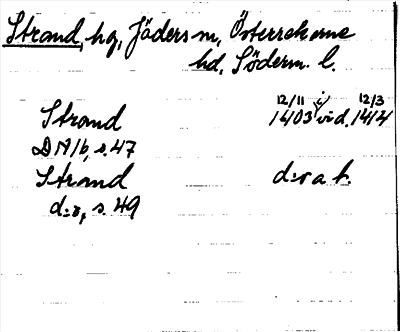 Strand, hg, Jäders sn, Österrekarne
hd, Söderm. l.
Strand 12/11 1403 i vid. 12/3 1414
DN 1b, s. 47
Strand d:o a h.
d:o, s. 49